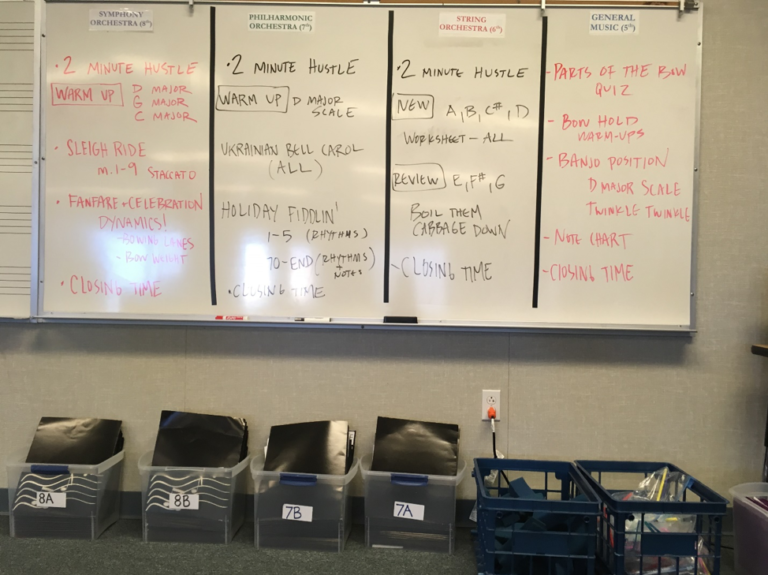 SYMPHONY
ORCHESTRA (8th)
• 2 MINUTE HUSTLE
WARM UP D MAJOR
G MAJOR
C MAJOR
• SLEIGH RIDE
m. 1-9 STACCATO
• FANFARE + CELEBRATION
DYNAMICS!
- BOWING LANES
- BOW WEIGHT
• CLOSING TIME
PHILHARMONIC
ORCHESTRA (7th)
• 2 MINUTE HUSTLE
WARM UP D MAJOR
SCALE
UKRAINIAN BELL CAROL
(ALL)
HOLIDAY FIDDLIN'
1-5 (RHYTHMS)
70-END (RHYTHMS
+ NOTES)
• CLOSING TIME
STRING
ORCHESTRA (6th)
• 2 MINUTE HUSTLE
NEW A, B, C#, D
WORKSHEET - ALL
REVIEW E, F#, G
BOIL THEM
CABBAGE DOWN
- CLOSING TIME
GENERAL
MUSIC (5th)
- PARTS OF THE BOW
QUIZ
- BOW HOLD
WARM-UPS
- BANJO POSITION
D MAJOR SCALE
TWINKLE TWINKLE
- NOTE CHART
- CLOSING TIME
8A
8B
7B
7A